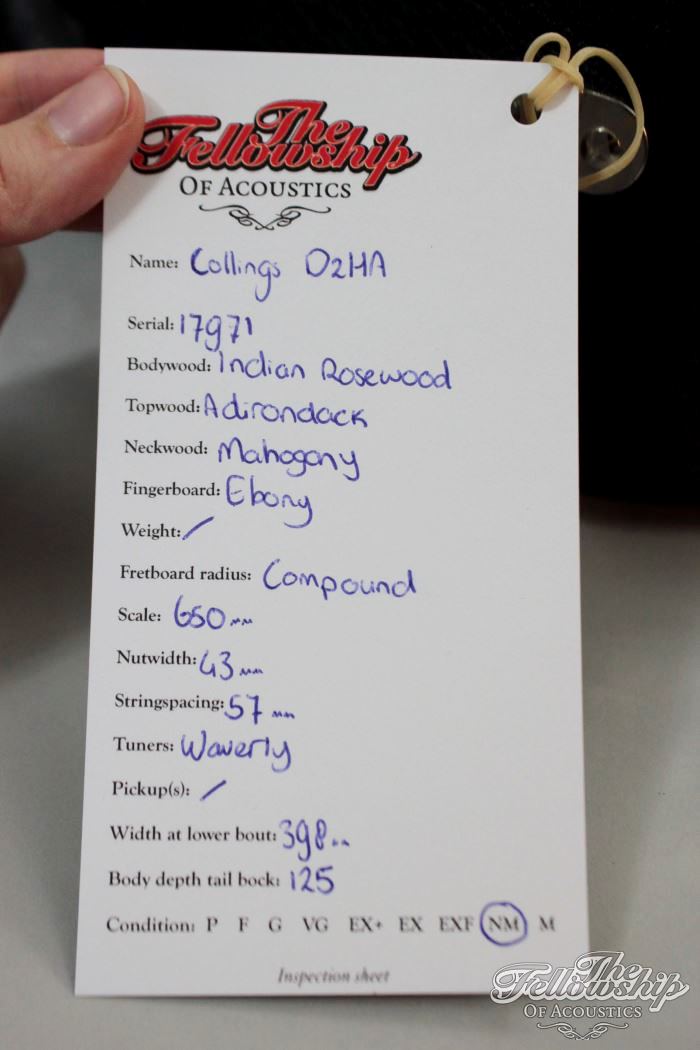 The
Fellowship
OF ACOUSTICS
Name: Collings D2HA
Serial: 17971
Bodywood: Indian Rosewood
Topwood: Adirondack
Neckwood: Mahogony
Fingerboard: Ebony
Weight: /
Fretboard radius: Compound
Scale: 650 mm
Nutwidth: 43 mm
Stringspacing: 57 mm
Tuners: Waverly
Pickup(s): /
Width at lower bout: 398 mm
Body depth tail bock: 125
Condition: P F G VG EX+ EX EXF NM M
Inspection sheet
The
Fellowship
OF ACOUSTICS